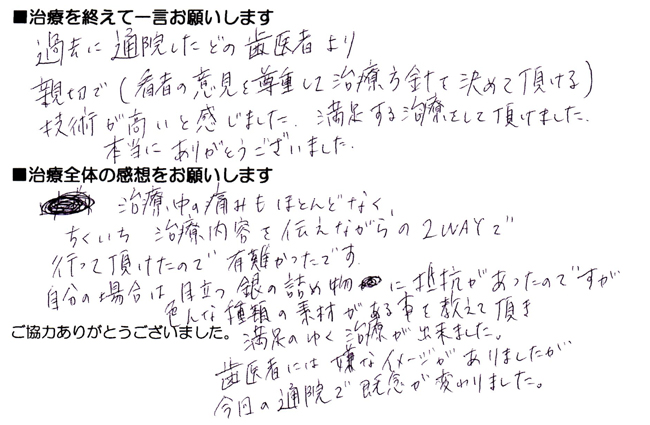 ■治療を終えて一言お願いします
過去に通院したどの歯医者より
親切で(看者の意見を尊重して治療方針を決めて頂ける)
技術が高いと感じました。満足する治療をして頂けました。
本当にありがとうございました。
■治療全体の感想をお願いします
治療中の痛みもほとんどなく、
ちくいち 治療内容を伝えながらの2WAYで
行って頂けたので有難かったです。
自分の場合は目立つ銀の詰め物に抵抗があったのですが
色んな種類の素材がある事を教えて頂き
ご協力ありがとうございました。
満足のゆく治療が出来ました。
歯医者には嫌なイメージがありましたが
今回の通院で既念が変わりました。